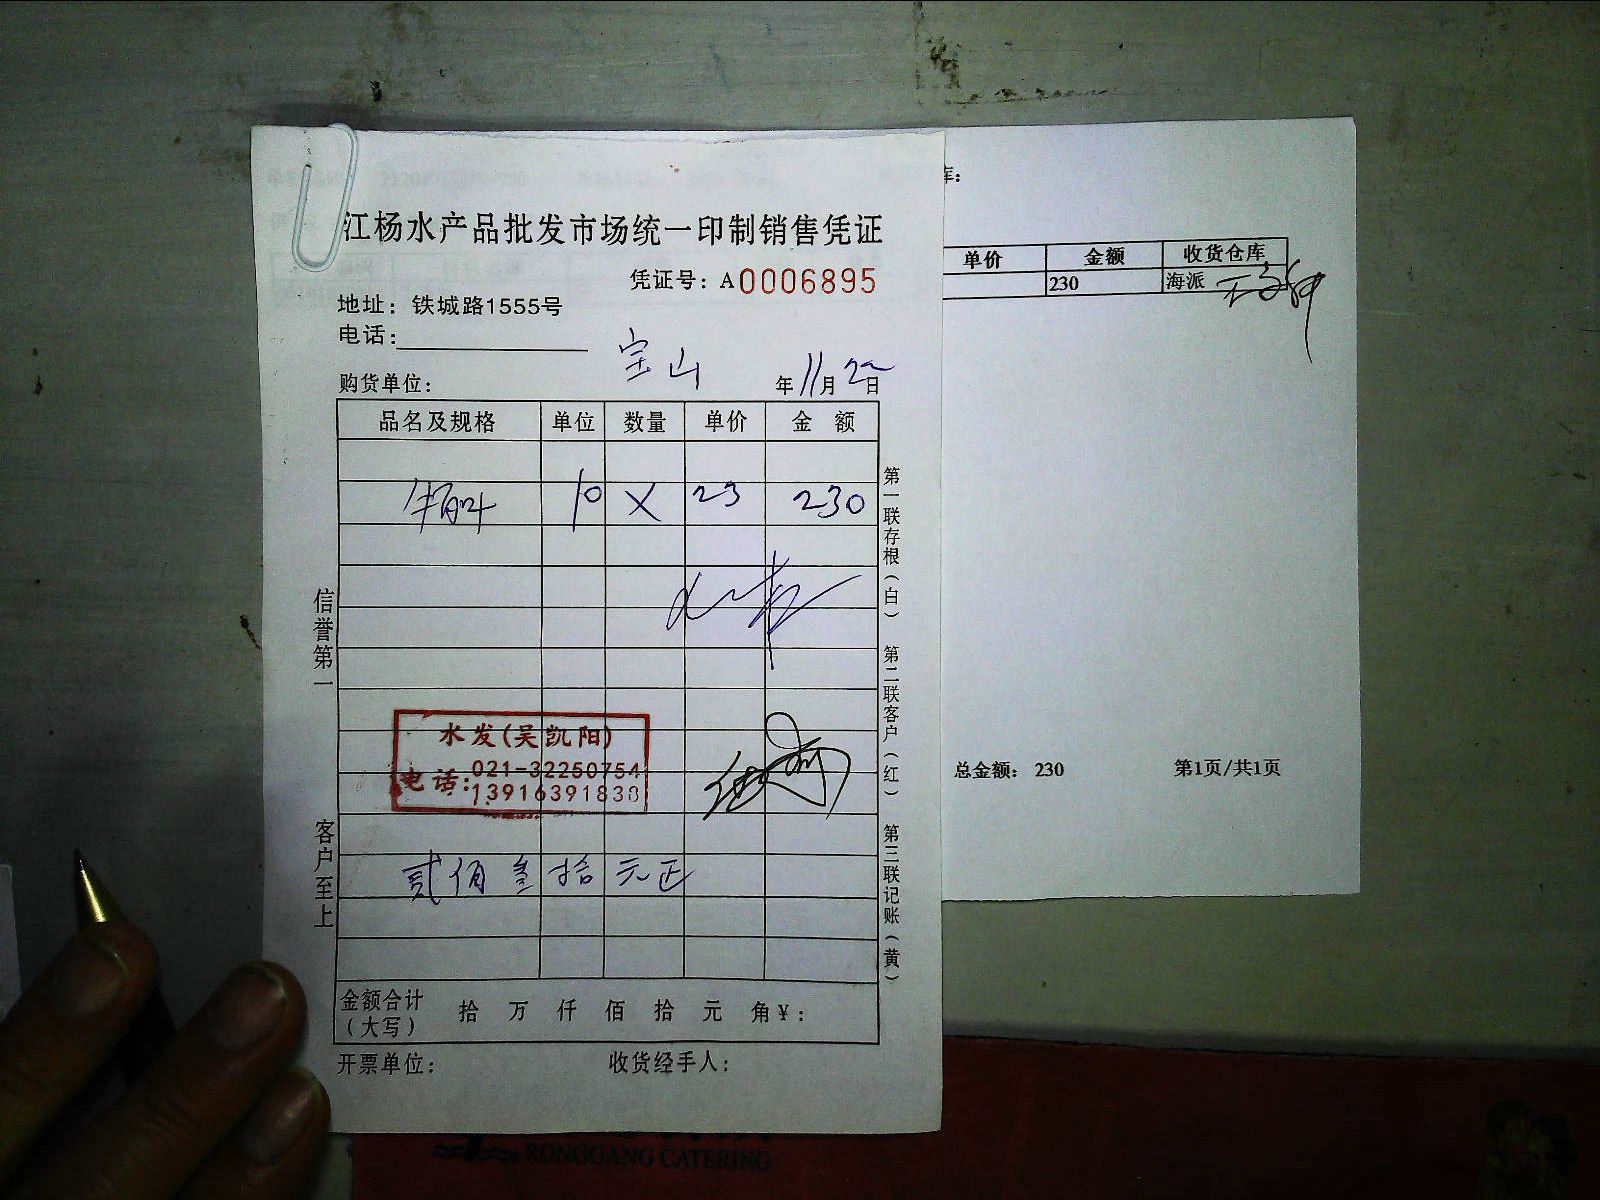 江杨水产品批发市场统一印制销售凭证
凭证号：A0006895
地址：铁城路1555号
电话：
宝山
购货单位：
年11月22日
品名及规格 单位 数量 单价 金额
10 X 23 230
水发(吴凯阳)
电话：021-32250754
13916391838
贰佰叁拾元正
金额合计（大写） 拾 万 仟 佰 拾 元 角¥：
开票单位： 收货经手人：
信誉第一 客户至上
第一联存根（白） 第二联客户（红） 第三联记账（黄）
库：
单价 金额 收货仓库
230 海派
总金额： 230 第1页/共1页
RONGGANG CATERING